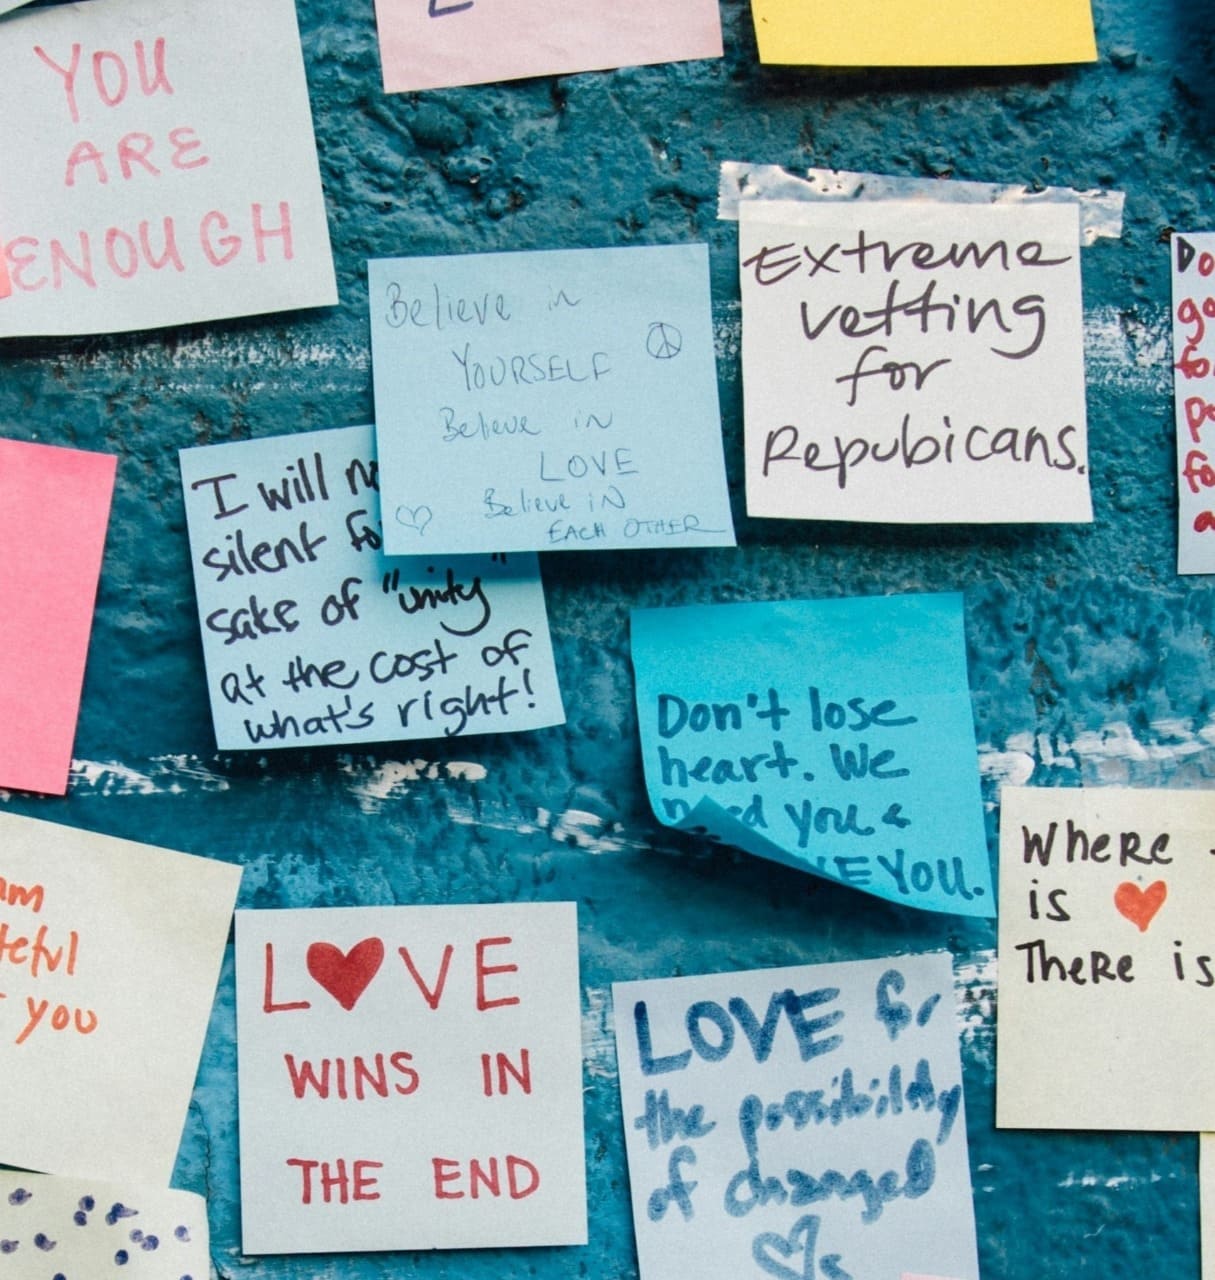 YOU
ARE
ENOUGH
Believe in
YOURSELF
Believe in
LOVE
Believe in
EACH OTHER
Extreme
vetting
for
Repubicans.
I will
silent
sake of "unity"
at the cost of
what's right!
Don't lose
heart. We
you &
YOU.
Where
is ♥
There is
you
L♥VE
WINS IN
THE END
LOVE for
the possibility
of changed
♡s